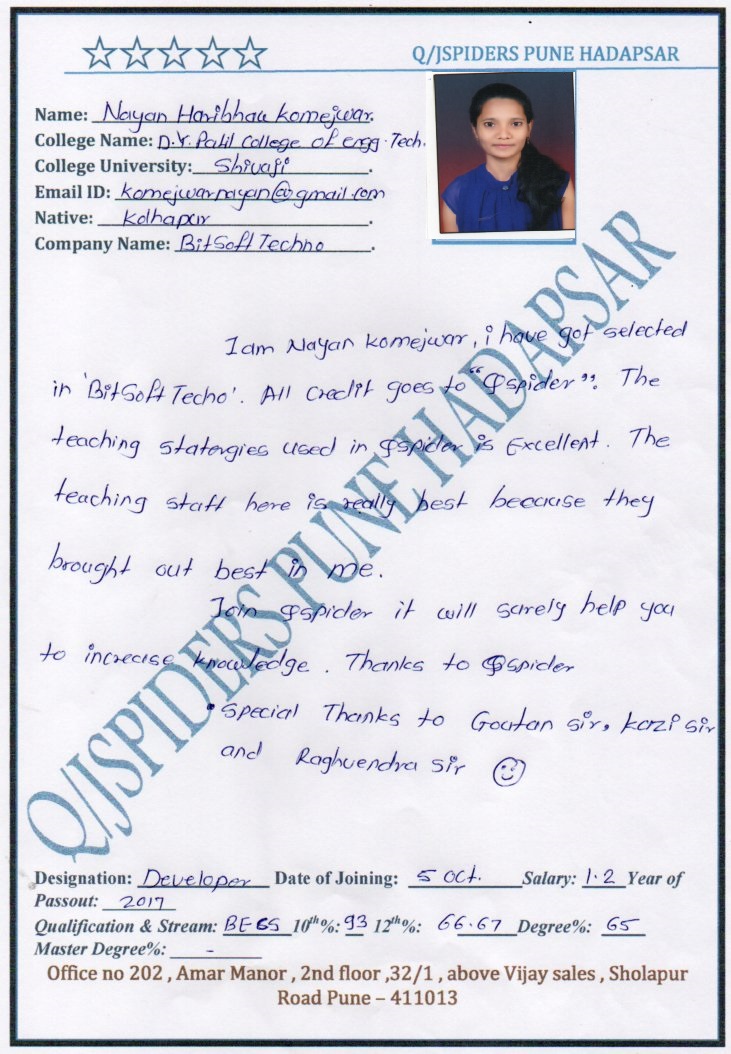 Q/JSPIDERS PUNE HADAPSAR
Name: Nayan Haribhau Komejwar.
College Name: D.Y. Patil College of engg. Tech.
College University: Shivaji .
Email ID: komejwarnayan@gmail.com
Native: Kolhapur .
Company Name: BitSoft Techno .
I am Nayan Komejwar, i have got selected
in 'BitSoft Techo'. All Credit goes to "Qspider". The
teaching statergies used in Qspider is Excellent. The
teaching staff here is really best because they
brought out best in me.
Join Qspider it will surely help you
to increase knowledge. Thanks to Qspider
• Special Thanks to Goutan sir, kazi sir
and Raghvendra sir
Q/JSPIDERS PUNE HADAPSAR
Designation: Developer Date of Joining: 5 Oct. Salary: 1.2 Year of
Passout: 2017
Qualification & Stream: BE CS 10th%: 93 12th%: 66.67 Degree%: 65
Master Degree%: -
Office no 202 , Amar Manor , 2nd floor ,32/1 , above Vijay sales , Sholapur
Road Pune – 411013